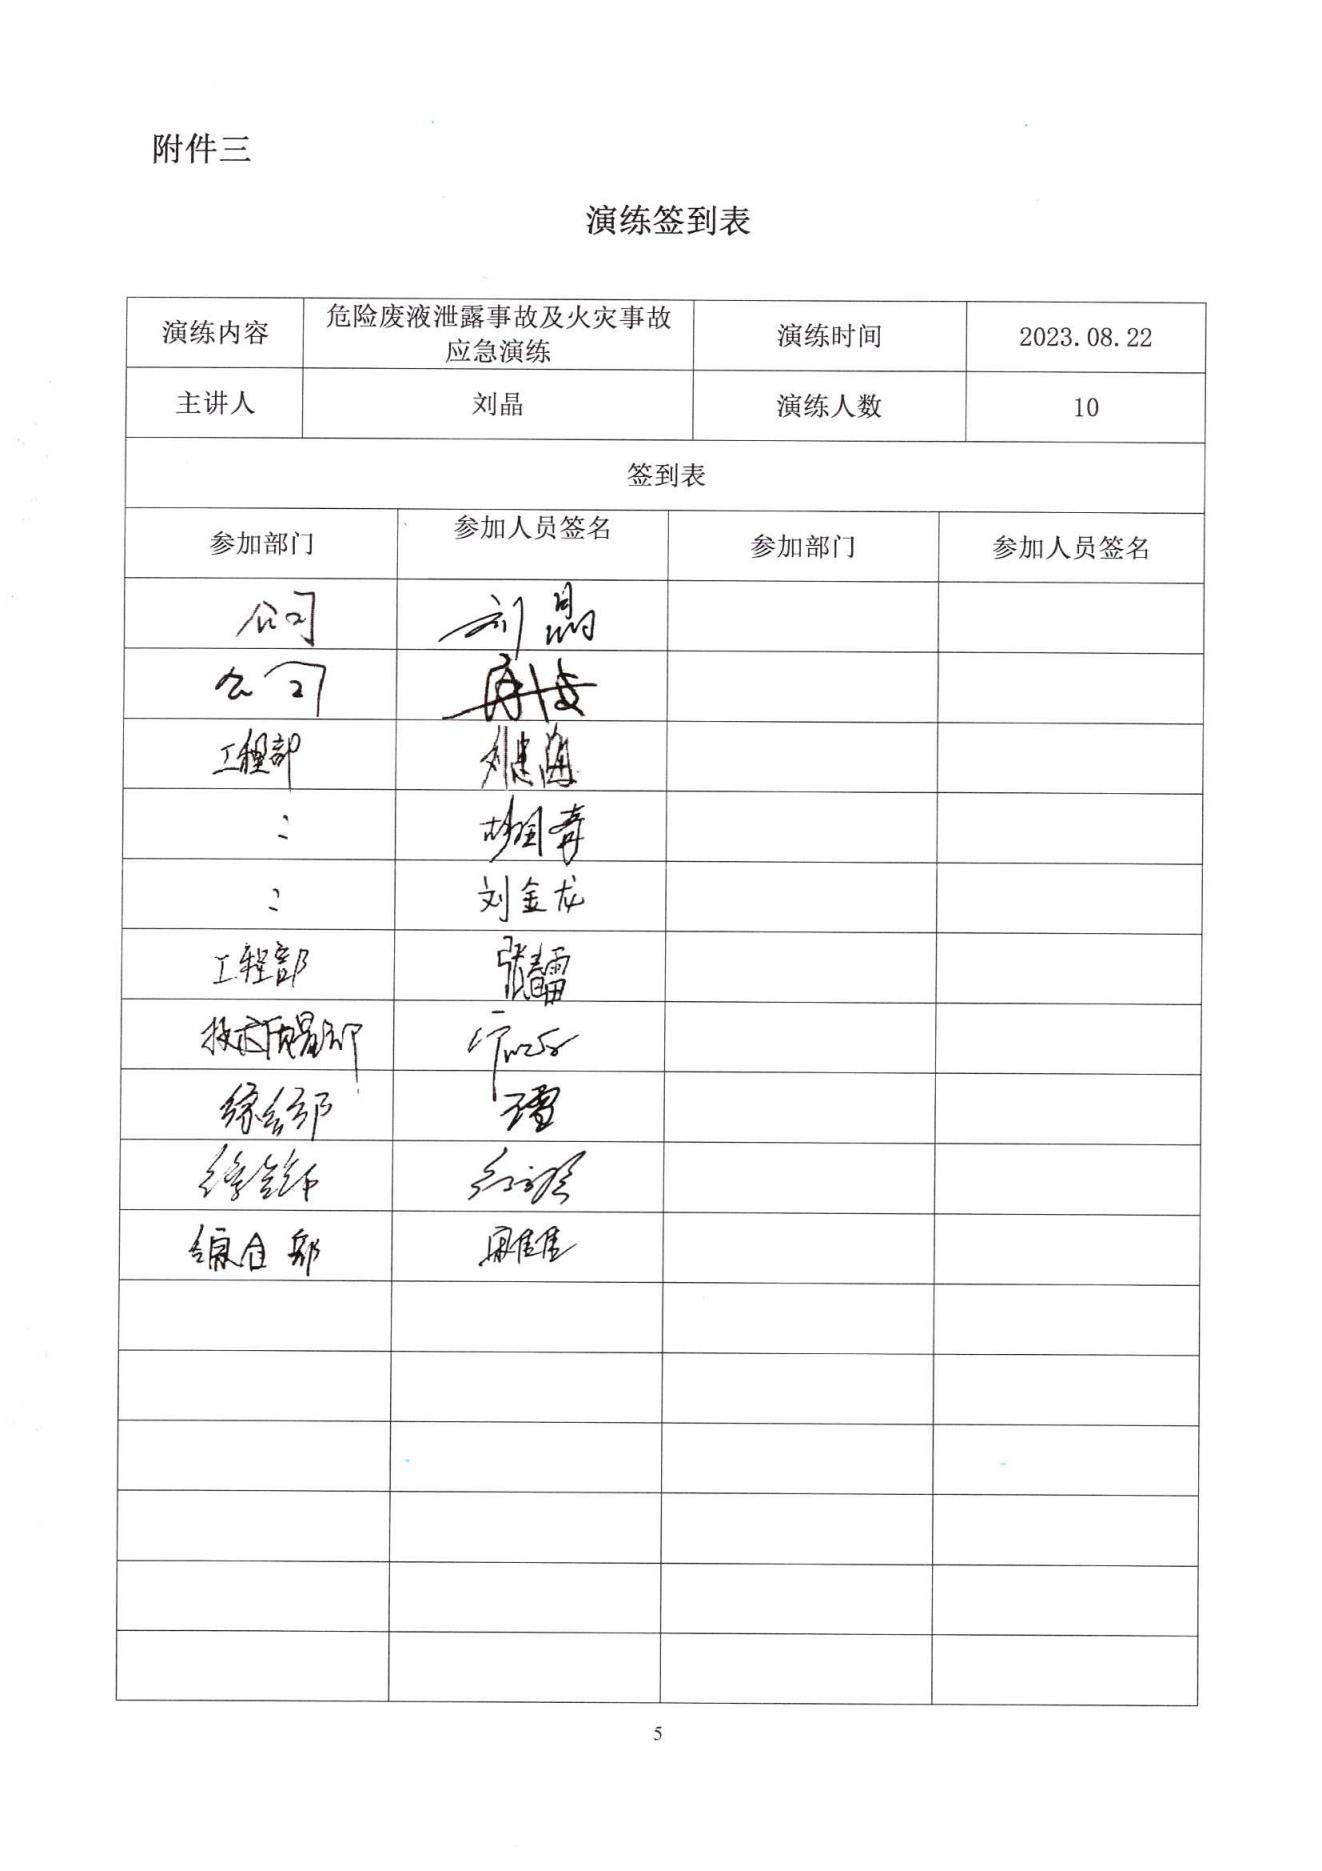 附件三
演练签到表
演练内容
危险废液泄露事故及火灾事故
应急演练
演练时间
2023.08.22
主讲人
刘晶
演练人数
10
签到表
参加部门
参加人员签名
参加部门
参加人员签名
公司
刘晶
公司
工程部
刘建海
:
:
刘金龙
工程部
张春雷
综合部
王雪
综合部
综合部
5